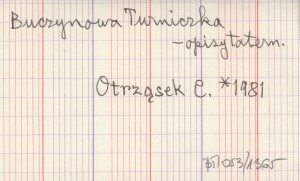 Buczynowa Turniczka
- opisy tatern.
Otrząsek C. *1981
/053/1365